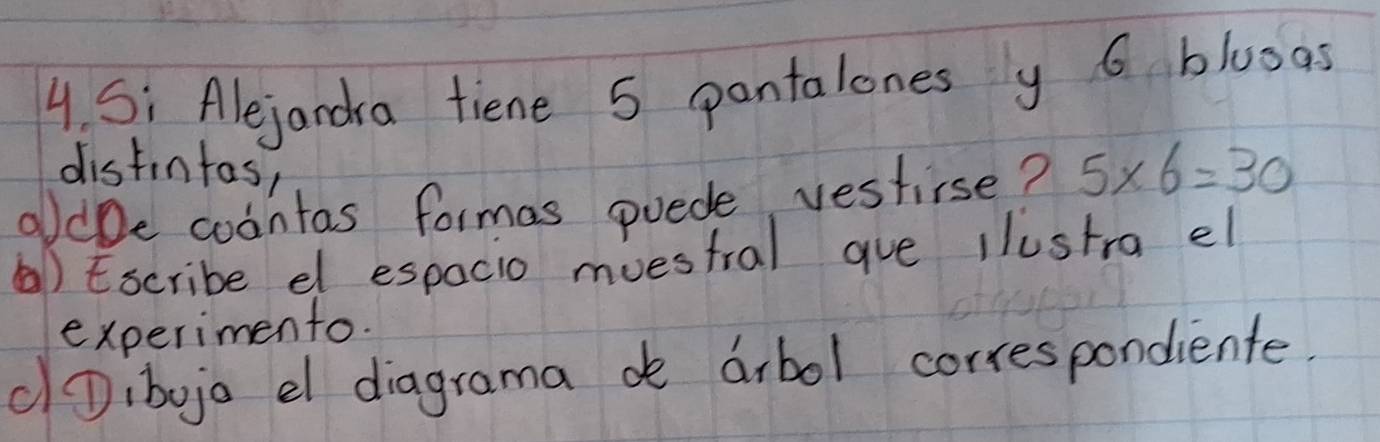 4. Si Alejandra tiene 5 pantalones y 6 blusas
distintas,
a) ¿De cuántas formas puede vestirse? 5x6=30
b) Escribe el espacio muestral que ilustra el
experimento.
c) Dibuja el diagrama de árbol correspondiente.